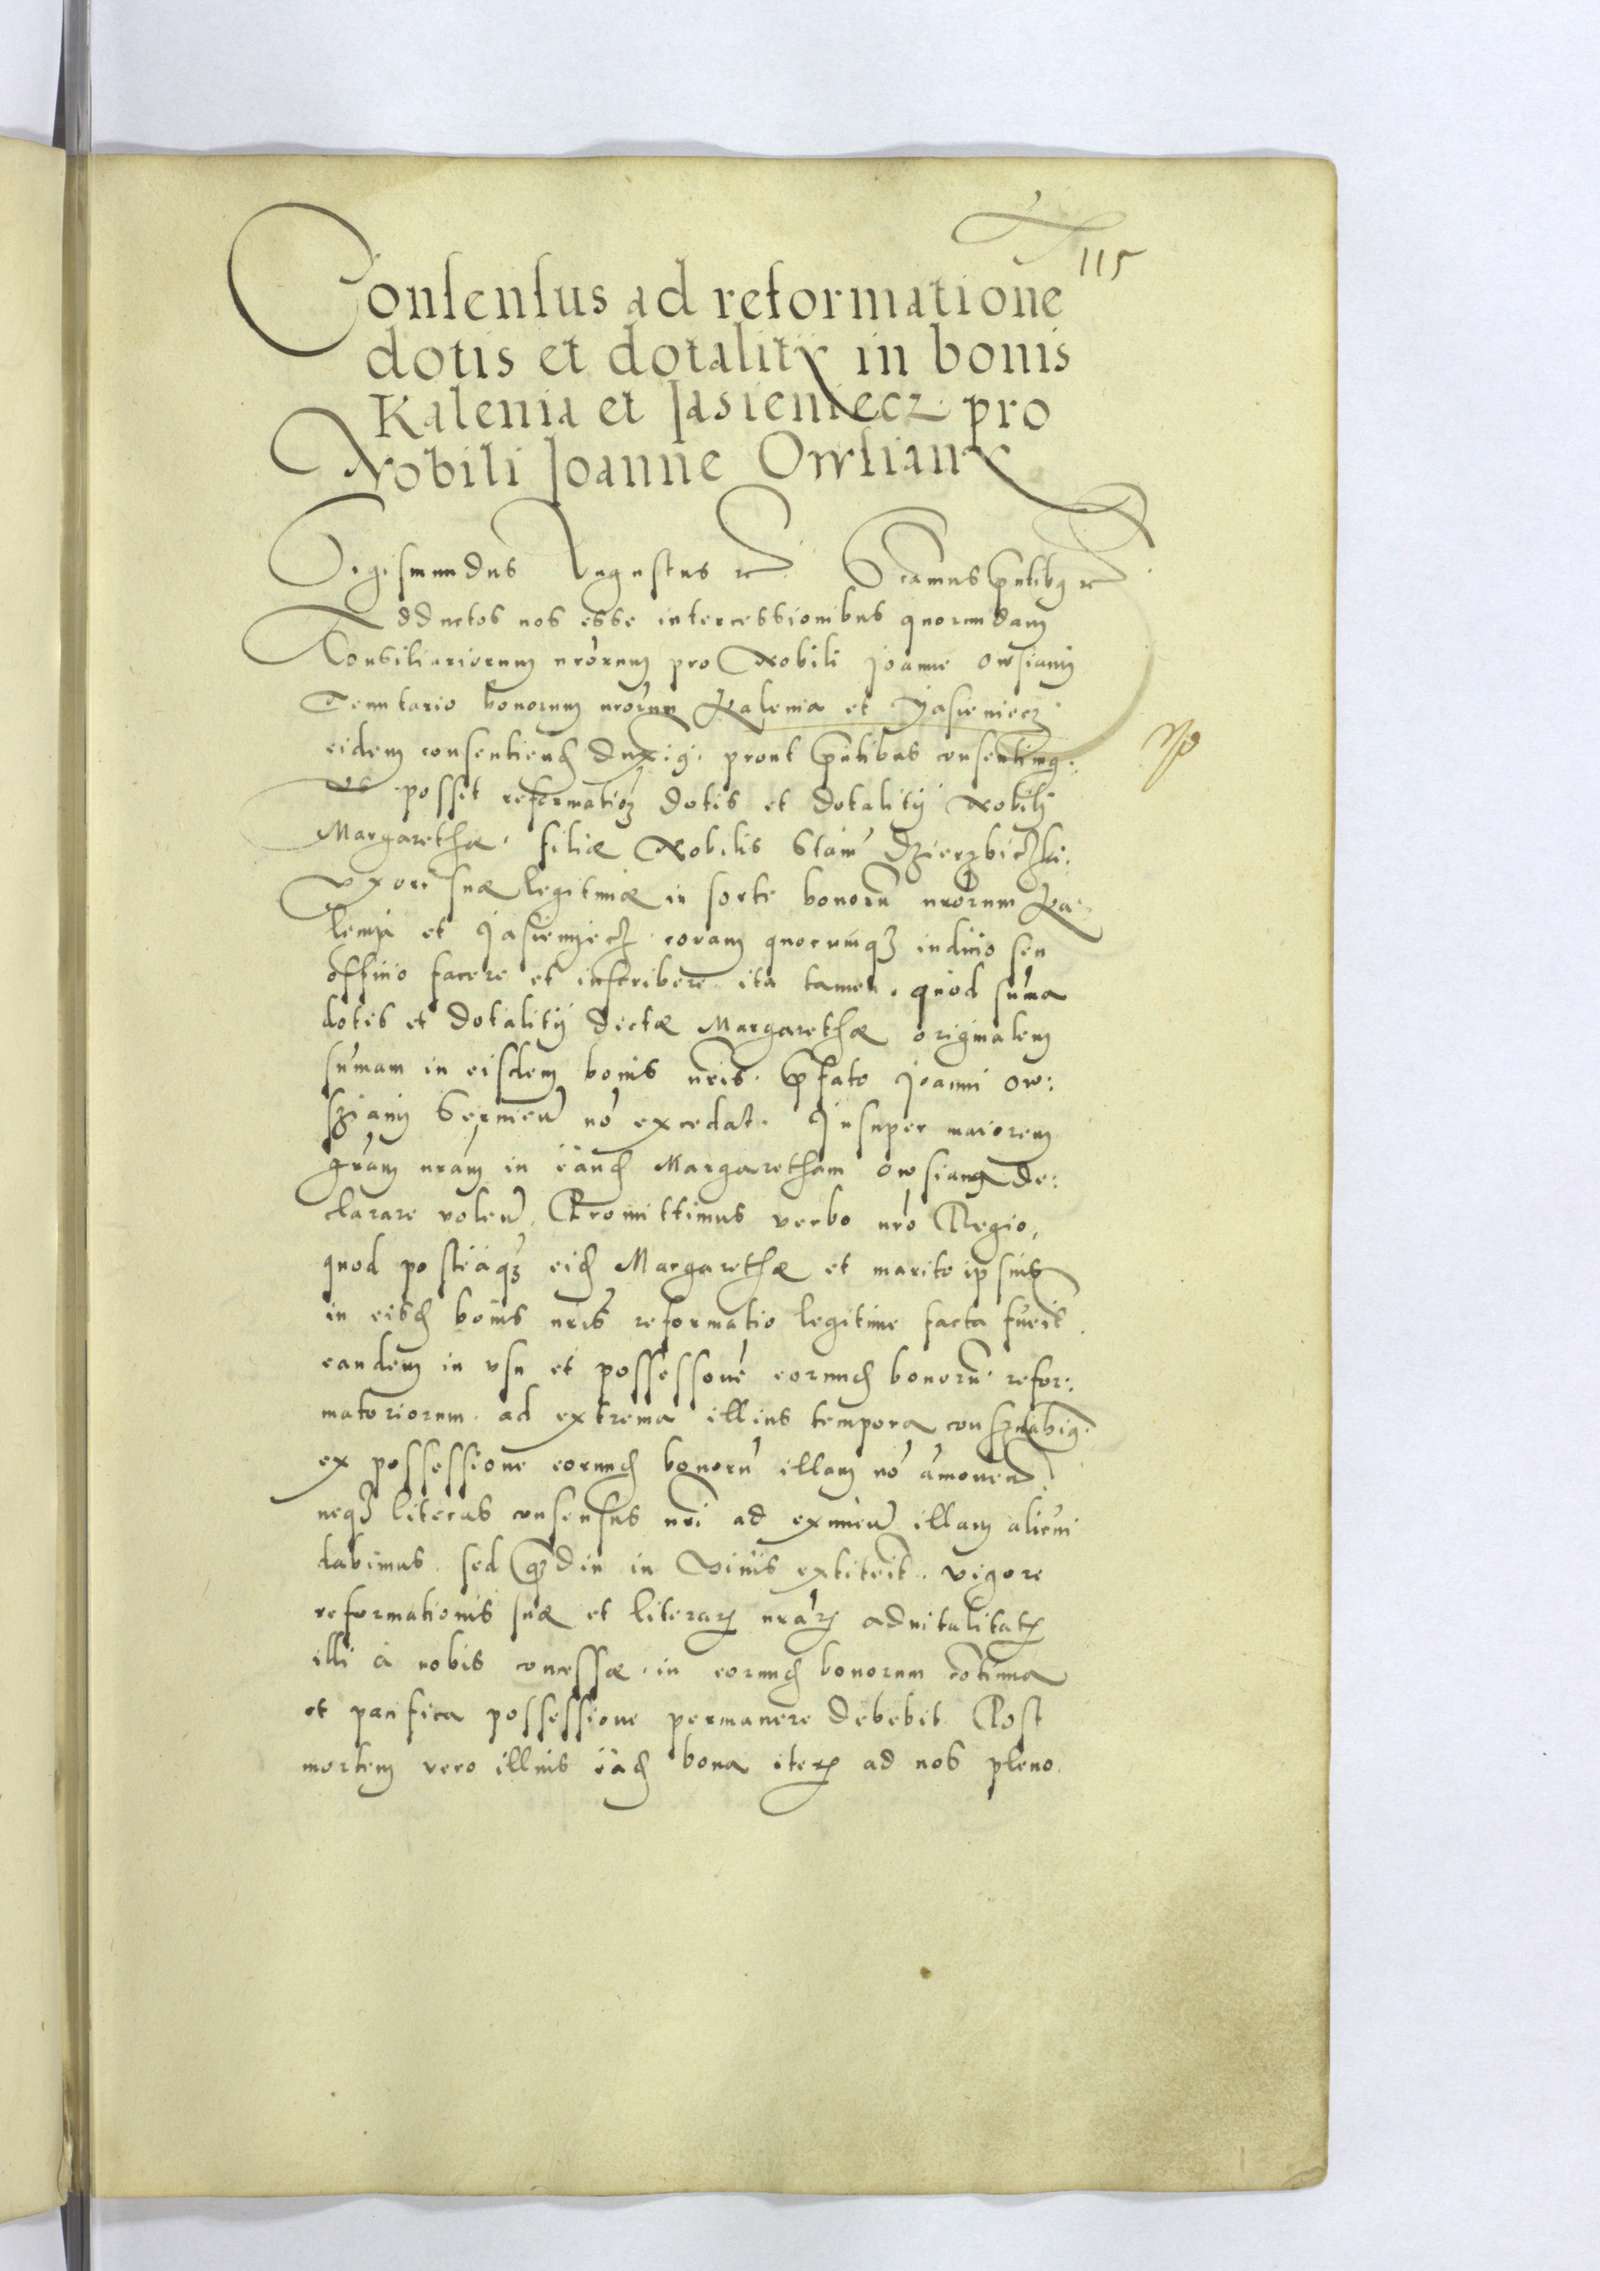 115
Consensus ad reformatione
dotis et dotalitij in bonis
Kalenia et Jasieniecz pro
Nobili Joanne Owsiany
Sigismundus Augustus etc. Scimus pntibq etc
Adductos nos esse intercessionibus quorundam
Consiliariorum nrorum pro Nobili Joanne Owsiany
Tenutario bonorum nrorum Kalenia et Jasieniecz
eidem consentiend duxim. prout pntibus consentimq.
Ut posset reformationem dotis et dotalitij Nobili
Margarethæ. filiæ Nobilis Stani Dzierzbiczki.
Uxori suæ legitimæ in sorte bonorū nrorum Ka-
lenia et Jasieniecz. coram quocumq iudicio seu
officio facere et inscribere. ita tamen. quod suma
dotis et dotalitij dictæ Margarethæ originalem
sumam in eisdem bonis nris. pfato Joanni Ow:
sziany seruien nō excedat. Insuper maiorem
gram nram in eand Margaretham Owsiana de:
clarare volen. Promittimus verbo nro Regio,
quod posteaq eid Margarethæ et marito ipsius
in eisd bonis nris reformatio legitime facta fuerit.
eandem in usu et possessione eorund bonorū refor:
matoriorum. ad extrema illius tempora conservabimq.
ex possessione eorund bonorū illam nō amouen.
neq literas consensus nri ad eximen illam alicui
dabimus. sed qdiu in viuis extiterit. vigore
reformationis suæ et literar nrar aduitalitat
illi à nobis concessæ. in eorund bonorum continua
et pacifica possessione permanere debebit. Post
mortem vero illius ead bona iterum ad nos pleno.